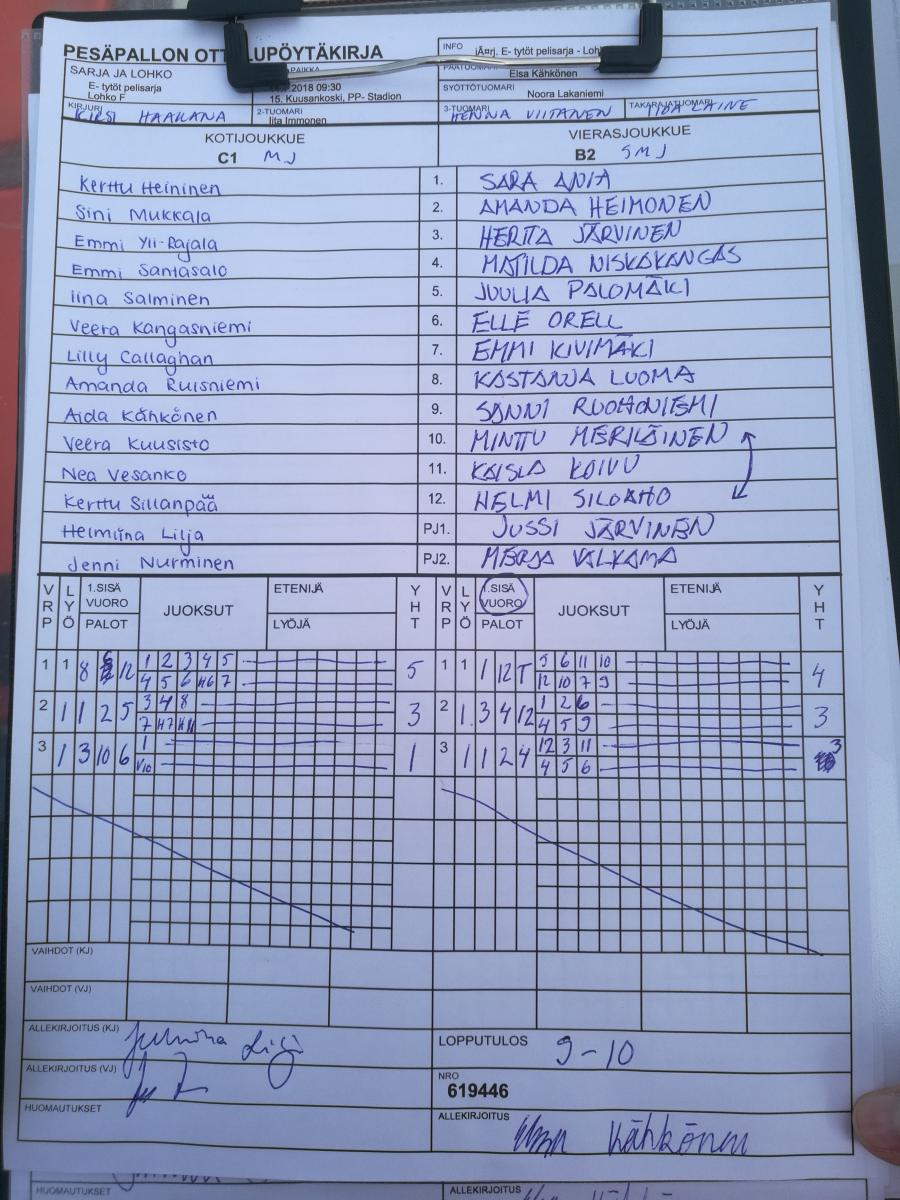 PESÄPALLON OTT LUPÖYTÄKIRJA
INFO jÄ¤rj. E- tytöt pelisarja - Loh
SARJA JA LOHKO
E- tytöt pelisarja
Lohko F
2018 09:30
15. Kuusankoski, PP- Stadion
Elsa Kähkönen
SYÖTTÖTUOMARI
Noora Lakaniemi
KIRJURI KIRSI HAAKANA
2-TUOMARI
Iita Immonen
3-TUOMARI HENNA VIITANEN
TAKARAJATUOMARI LAINE
KOTIJOUKKUE
C1 MJ
VIERASJOUKKUE
B2 SMJ
Kerttu Heininen 1. SARA ANIA
Sini Mukkala 2. AMANDA HEIMONEN
Emmi Yli-Rajala 3. HERTTA JÄRVINEN
Emmi Santasalo 4. MATILDA NISKAKANGAS
Iina Salminen 5. JUULIA PALOMÄKI
Veera Kangasniemi 6. ELLE ORELL
Lilly Callaghan 7. EMMI KIVIMÄKI
Amanda Ruisniemi 8. KASTANJA LUOMA
Aida Kähkönen 9. SANNI RUOHONIEMI
Veera Kuusisto 10. MINTTU MERILÄINEN
Nea Vesanko 11. KAISLA KOIVU
Kerttu Sillanpää 12. HELMI SILOAHO
Helmiina Lilja PJ1. JUSSI JÄRVINEN
Jenni Nurminen PJ2. MERJA VALKAMA
VRP LYÖ 1.SISÄ VUORO PALOT JUOKSUT ETENIJÄ LYÖJÄ YHT VRP LYÖ 1.SISÄ VUORO PALOT JUOKSUT ETENIJÄ LYÖJÄ YHT
1 1 8 12 1 2 3 4 5 5 1 1 1 12 T 5 6 11 10 4
4 5 6 H6 7 12 10 7 9
2 1 1 2 5 3 4 8 3 2 1. 3 4 12 1 2 6 3
7 H7 H11 4 5 9
3 1 3 10 6 1 1 3 1 1 2 4 12 3 11 3
V10 4 5 6
VAIHDOT (KJ)
VAIHDOT (VJ)
ALLEKIRJOITUS (KJ)
LOPPUTULOS 9-10
ALLEKIRJOITUS (VJ)
NRO
619446
HUOMAUTUKSET
ALLEKIRJOITUS Kähkönen
HUOMAUTUKSET
ALLEKIRJOITUS